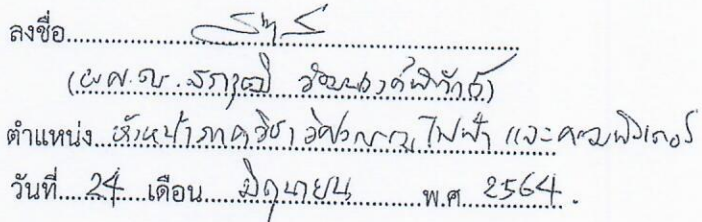 ลงชื่อ
(ผศ.ดร.สราวุฒิ
ตำแหน่ง หัวหน้าภาควิชาวิศวกรรมไฟฟ้า และคอมพิวเตอร์
วันที่ 24 เดือน มิถุนายน พ.ศ. 2564.